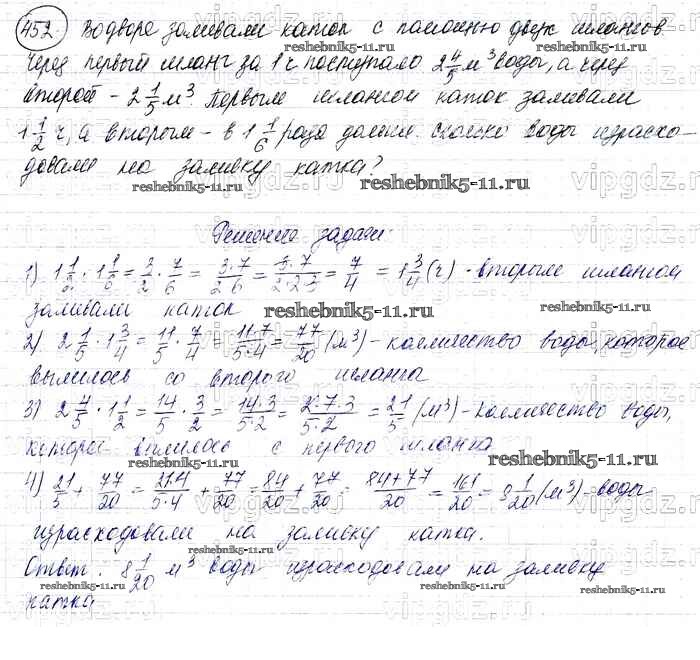 452. Во дворе заливали каток с помощью двух шлангов.
Через первый шланг за 1 ч поступало 2 4/5 м³ воды, а через
второй – 2 1/5 м³. Первым шлангом каток заливали
1 1/2 ч, а вторым – в 1 1/6 раза дольше. Сколько воды израсхо-
довали на заливку катка?
reshebnik5-11.ru
Решение задачи:
1) 1 1/2 · 1 1/6 = 3/2 · 7/6 = 3·7/2·6 = 3·7/2·2·3 = 7/4 = 1 3/4 (ч) - вторым шлангом
заливали каток
2) 2 1/5 · 1 3/4 = 11/5 · 7/4 = 11·7/5·4 = 77/20 (м³) - количество воды, которое
вылилось со второго шланга
3) 2 4/5 · 1 1/2 = 14/5 · 3/2 = 14·3/5·2 = 2·7·3/5·2 = 21/5 (м³) - количество воды,
которое вылилось с первого шланга
4) 21/5 + 77/20 = 21·4/5·4 + 77/20 = 84/20 + 77/20 = 84+77/20 = 161/20 = 8 1/20 (м³) - воды
израсходовали на заливку катка.
Ответ: 8 1/20 м³ воды израсходовали на заливку
катка